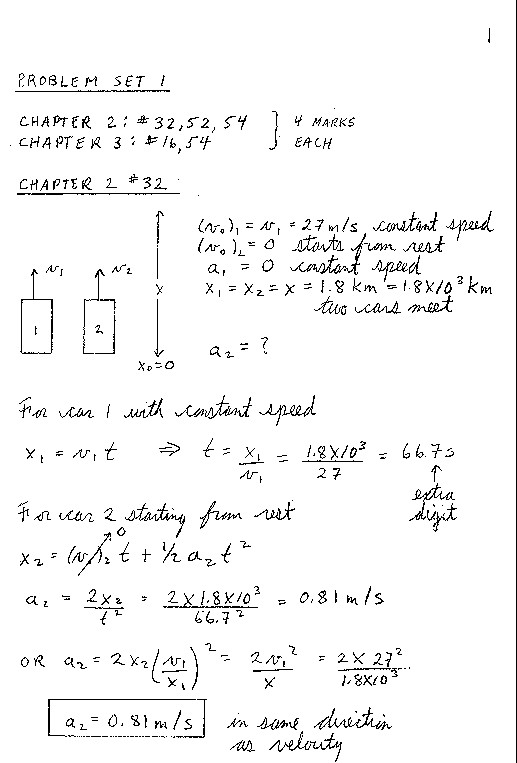 1
PROBLEM SET 1
CHAPTER 2: #32, 52, 54 ] 4 MARKS
CHAPTER 3: #16, 54 EACH
CHAPTER 2 #32
(v₀)₁ = v₁ = 27 m/s constant speed
(v₀)₂ = 0 starts from rest
a₁ = 0 constant speed
x₁ = x₂ = x = 1.8 km = 1.8X10³ km
two cars meet
v₁ v₂ x
1 2
x₀=0
a₂ = ?
For car 1 with constant speed
x₁ = v₁t ⇒ t = x₁/v₁ = 1.8X10³/27 = 66.7s
extra
digit
For car 2 starting from rest
x₂ = (v₀)₂t + ½ a₂t² 0
a₂ = 2x₂/t² = 2X1.8X10³/66.7² = 0.81 m/s
OR a₂ = 2x₂(v₁/x₁)² = 2v₁²/x = 2X27²/1.8X10³
a₂ = 0.81 m/s in same direction
as velocity